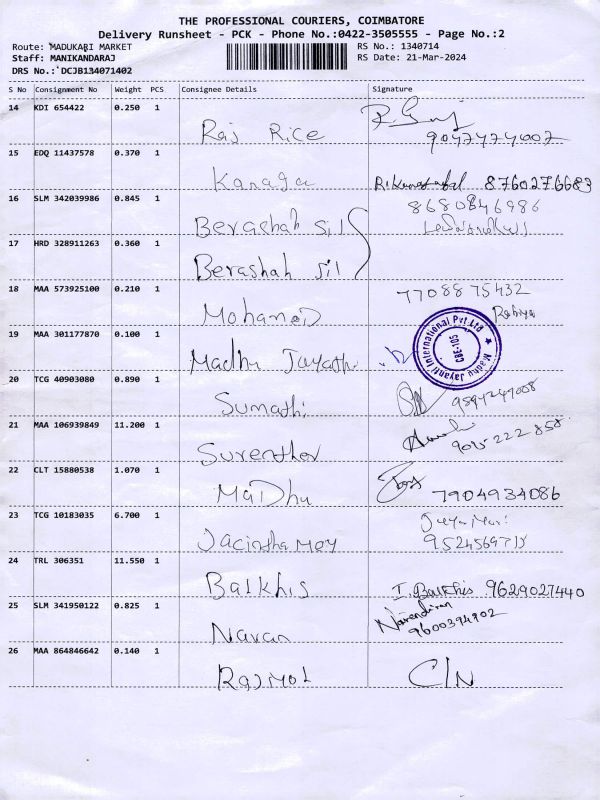 THE PROFESSIONAL COURIERS, COIMBATORE
Delivery Runsheet - PCK - Phone No.:0422-3505555 - Page No.:2
Route: MADUKARI MARKET RS No.: 1340714
Staff: MANIKANDARAJ RS Date: 21-Mar-2024
DRS No.: DCJB134071402
S No Consignment No Weight PCS Consignee Details Signature
14 KDI 654422 0.250 1
Raj Rice
15 EDQ 11437578 0.370 1
Kanaga 8760276683
16 SLM 342039986 0.845 1 8680846986
Berashah sil
17 HRD 328911263 0.360 1
Berashah sil
18 MAA 573925100 0.210 1 7708875432
Mohamed
19 MAA 301177870 0.100 1
Madhu Jayanthi
Madhu Jayanti International Pvt Ltd ★
CBE-105
20 TCG 40903080 0.890 1
Sumathi
21 MAA 106939849 11.200 1
Surendher
22 CLT 15880538 1.070 1
Madhu 7904934086
23 TCG 10183035 6.700 1
Jacintha Mey
24 TRL 306351 11.550 1
Balkhis I. Balkhis 9629027440
25 SLM 341950122 0.825 1
Navan Narendiran
9600394902
26 MAA 864846642 0.140 1
Rajmol C/N